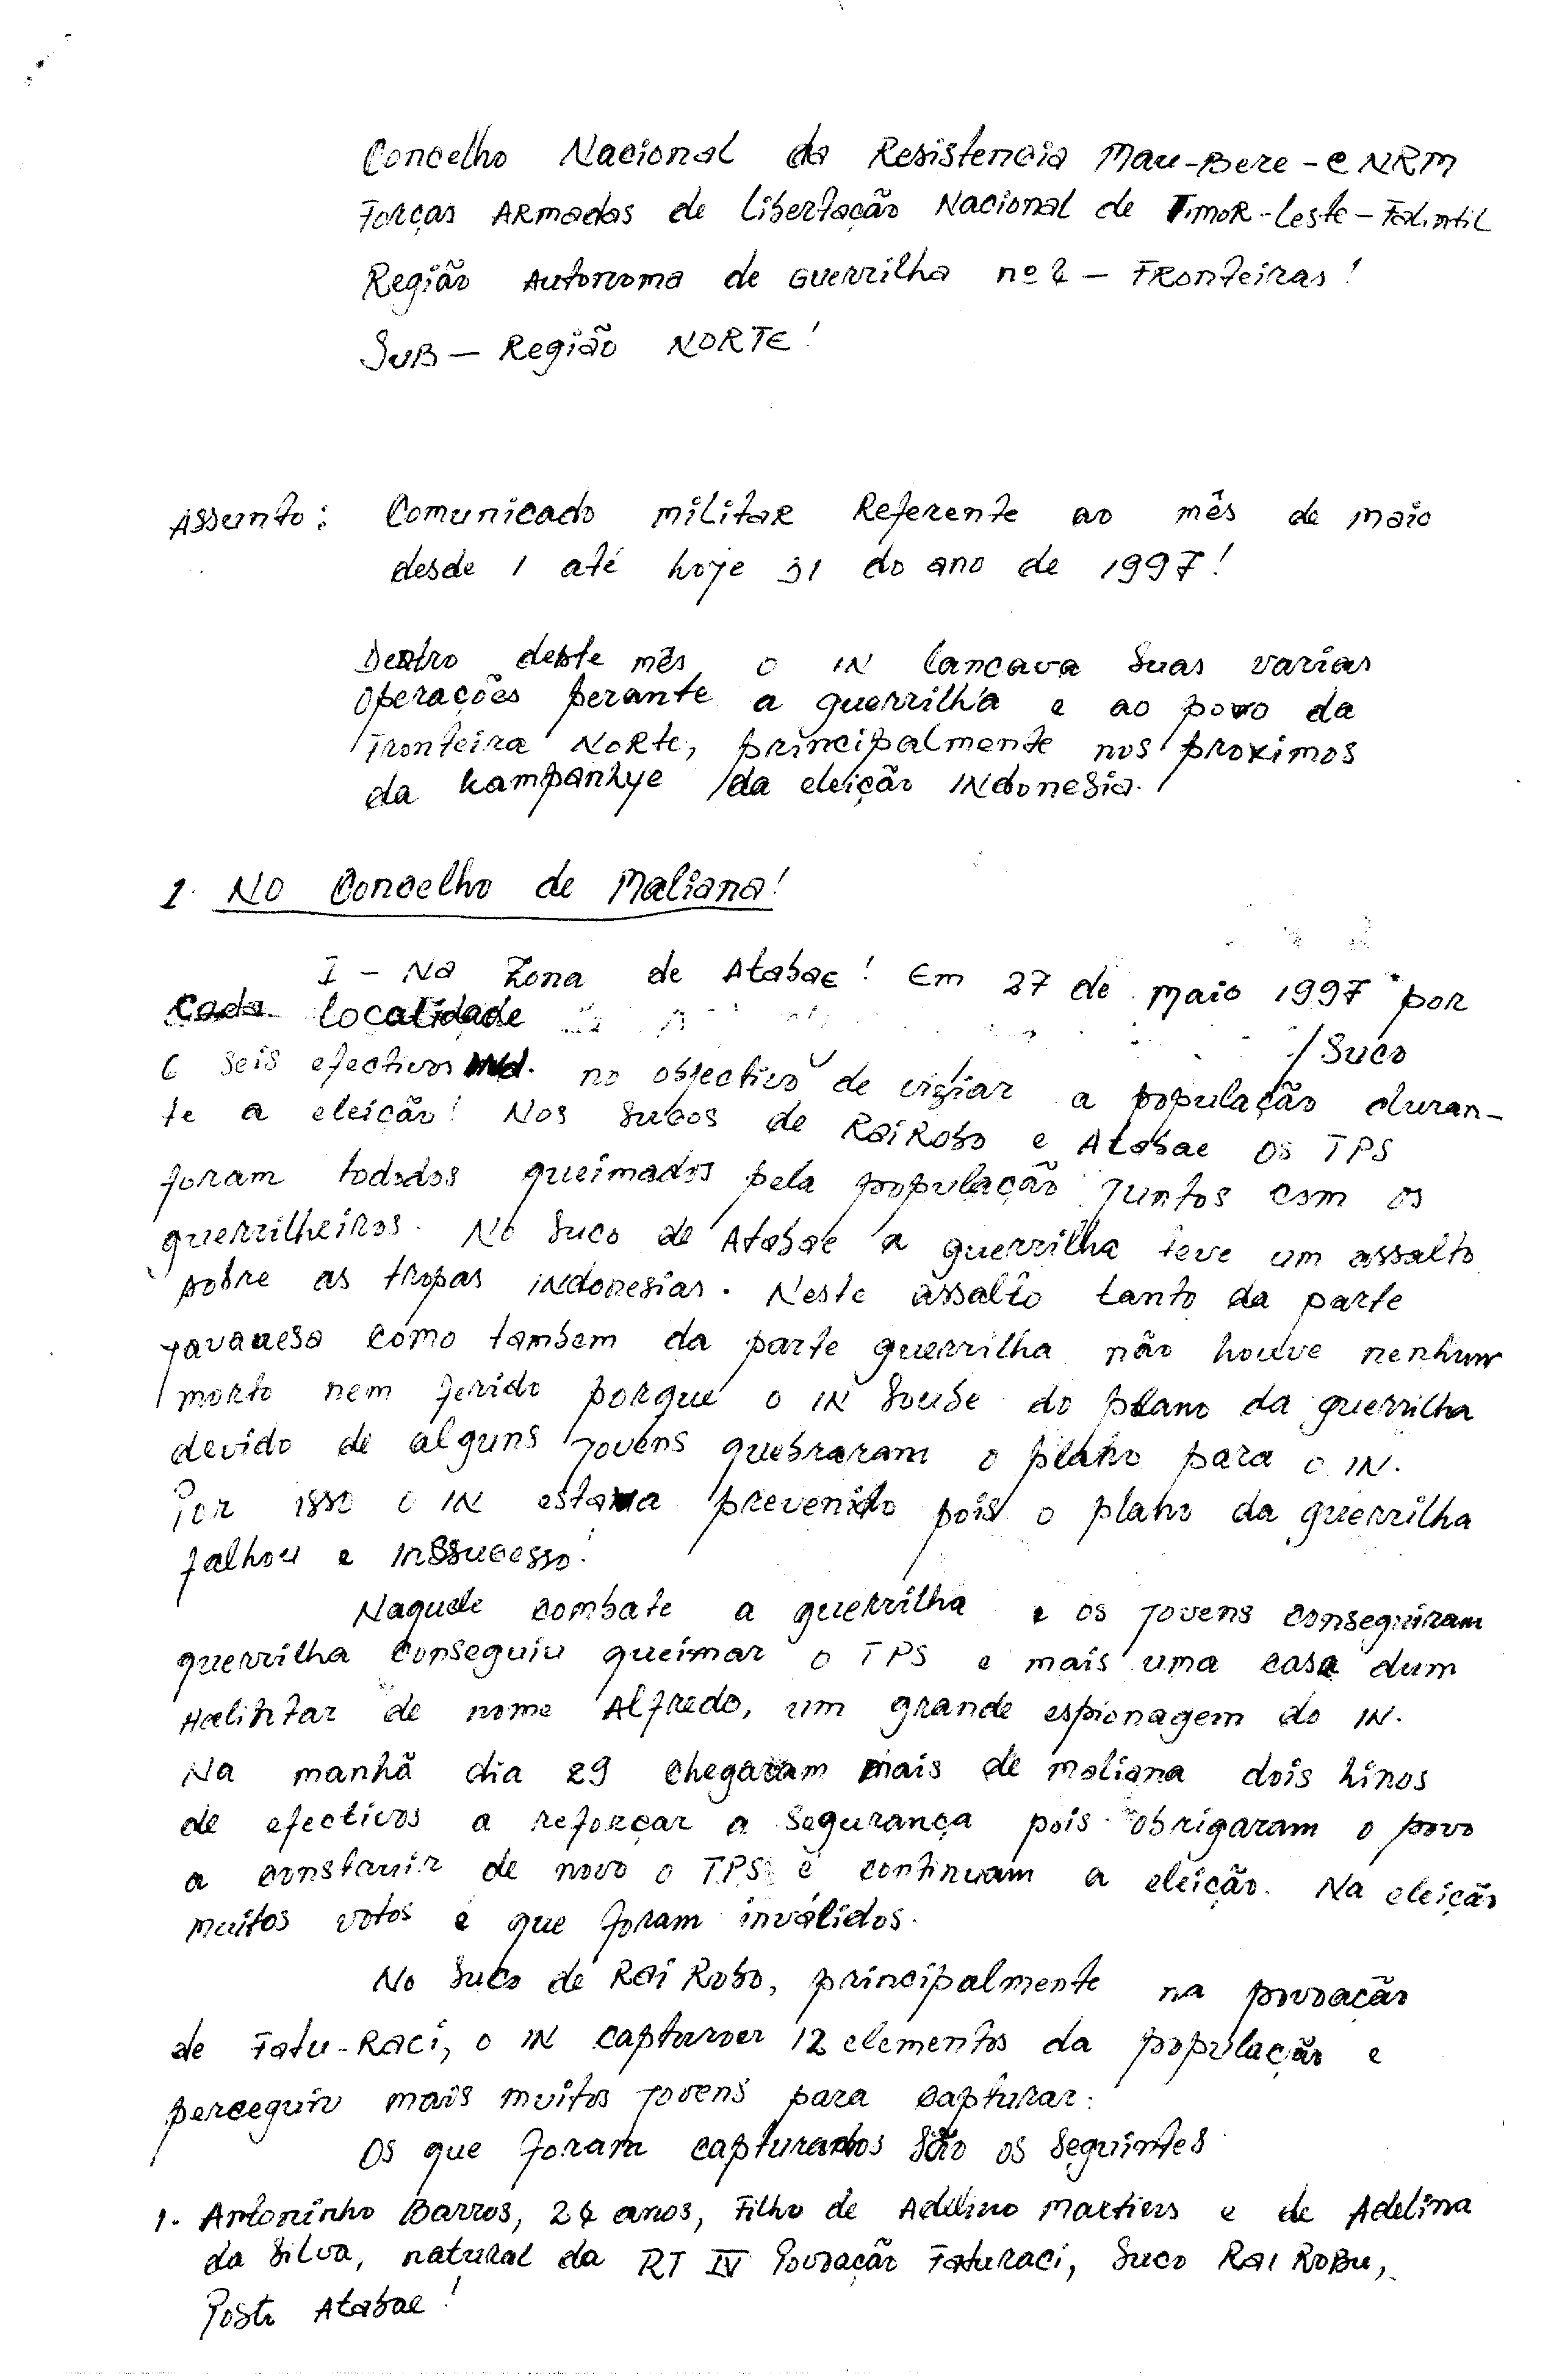 Concelho Nacional da Resistencia Mau-Bere - CNRM
Forças ARmadas de Libertação Nacional de TimoR-Leste - Falintil
Região Autonoma de Guerrilha nº 4 - FRonteiras!
SUB - Região NORTE!
Assunto: Comunicado militaR Referente ao mês de maio
desde 1 até hoje 31 do ano de 1997!
Dentro deste mês o IN lancava Suas varias
Operações perante a guerrilha e ao povo da
Fronteira NoRte, principalmente nos proximos
da kampanhye da eleição INdonesia.
1. NO Concelho de Maliana!
I - Na Zona de Atabae! Em 27 de maio 1997 por
Cada localidade
/Suco
6 seis efectivos Ind. no objectivo de vigiar a população duran-
te a eleição! Nos Sucos de RaiRobo e Atabae os TPS
foram tododos queimados pela população juntos com os
guerrilheiros. No Suco de Atabae a guerrilha teve um assalto
sobre as tropas INdonesias. Neste assalto tanto da parte
javanesa como tambem da parte guerrilha não houve nenhum
morto nem ferido porque o IN Soube do plano da guerrilha
devido de alguns jovens quebraram o plano para o IN.
Por isso o IN estava prevenido pois o plano da guerrilha
falhou e inssucesso!
Naquele combate a guerrilha e os jovens conseguiram
guerrilha conseguiu queimar o TPS e mais uma casa dum
de nome Alfredo, um grande espionagem do IN.
Na manhã dia 29 chegaram mais de maliana dois hinos
de efectivos a reforçar a Segurança pois obrigaram o povo
a construir de novo o TPS e continuam a eleição. Na eleição
muitos votos e que foram inválidos.
No Suco de Rai Robo, principalmente na povoação
de Fatu-Raci, o IN capturoer 12 elementos da população e
perceguiu mais muitos jovens para capturar.
Os que foram capturados são os seguintes
1. Antoninho Barros, 24 anos, Filho de Adelino Martins e de Adelina
da Silva, natural da RT IV Povoação Faturaci, Suco Rai RoBu,
Posto Atabae!